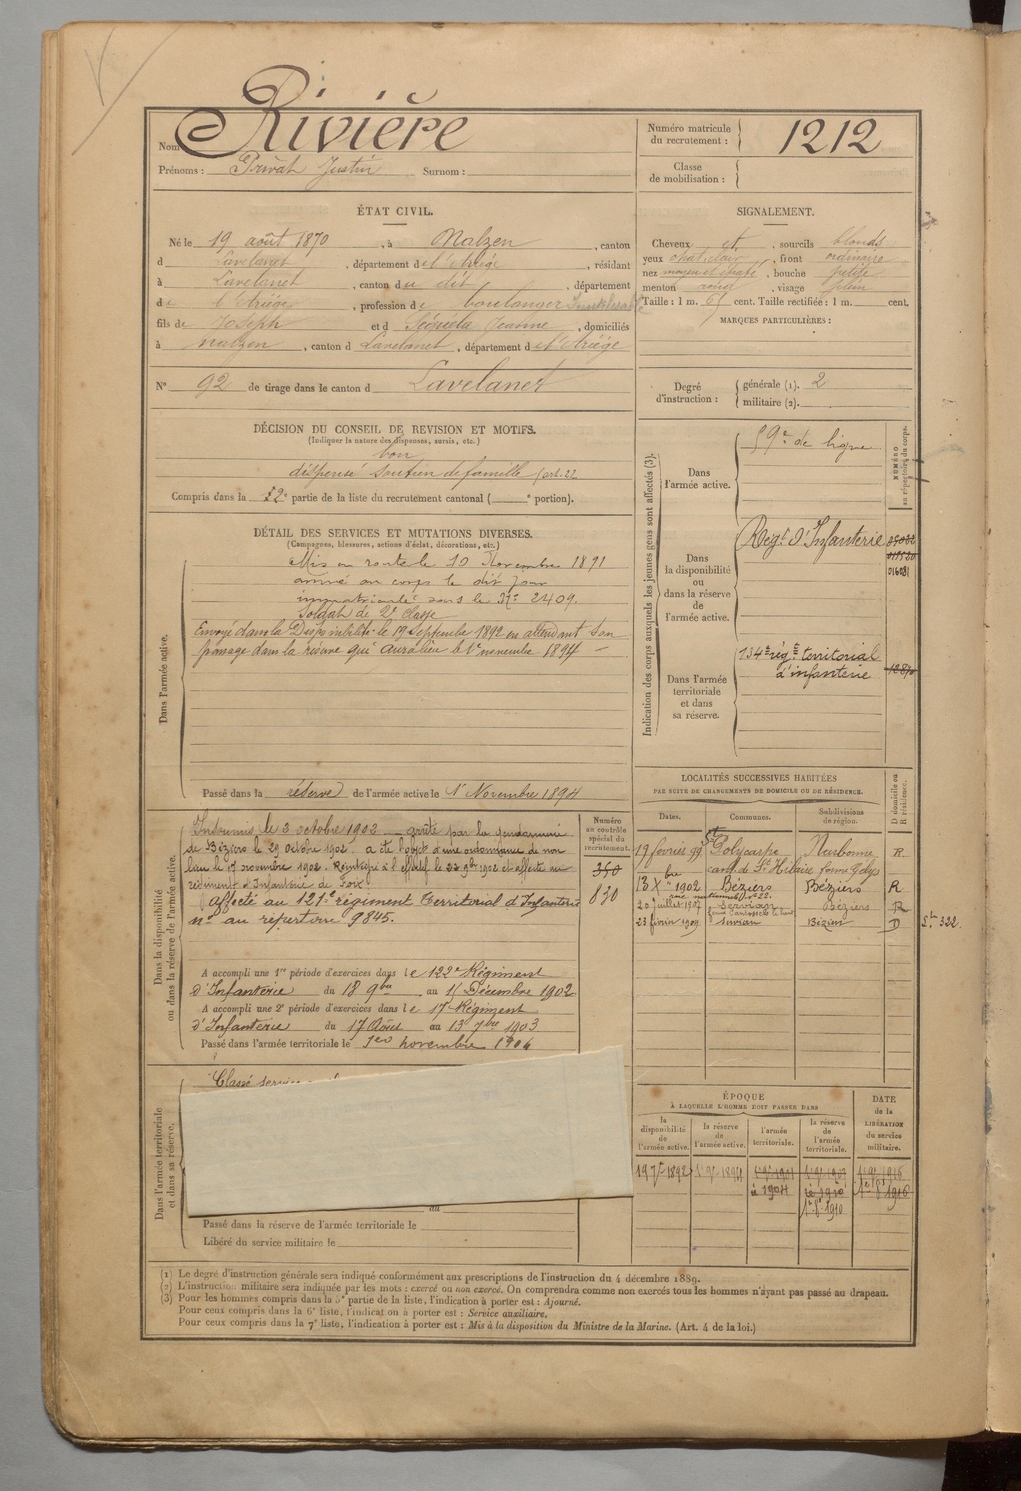 Nom Rivière
Prénoms : Privat Justin Surnom :
Numéro matricule du recrutement : 1212
Classe de mobilisation :
ÉTAT CIVIL.
Né le 19 août 1870, à Nalzen, canton
d Lavelanet, département de l'Ariége, résidant
à Lavelanet, canton du dit, département
de l'Ariége, profession de boulanger
fils de Joseph et d Jeanne, domiciliés
à nalzen, canton d Lavelanet, département d el'Ariége
N° 92 de tirage dans le canton d Lavelanet
SIGNALEMENT.
Cheveux et, sourcils blonds
yeux chat clair, front ordinaire
nez moyen et épaté, bouche petite
menton rond, visage plein
Taille : 1 m. cent. Taille rectifiée : 1 m. cent.
MARQUES PARTICULIÈRES :
Degré d'instruction : générale (1). 2
militaire (2).
DÉCISION DU CONSEIL DE REVISION ET MOTIFS.
(Indiquer la nature des dispenses, sursis, etc.)
bon
dispensé soutien de famille (art. 22
Compris dans la 2e partie de la liste du recrutement cantonal ( e portion).
DÉTAIL DES SERVICES ET MUTATIONS DIVERSES.
(Campagnes, blessures, actions d'éclat, décorations, etc.)
Dans l'armée active.
Mis en route le 10 Novembre 1891
arrivé au corps le dit jour
immatriculé sous le N° 2409.
Soldat de 2e classe
Envoyé dans la Disponibilité le 19 Septembre 1892 en attendant son
passage dans la réserve qui aura lieu le 1er novembre 1894 —
Passé dans la réserve de l'armée active le 1er Novembre 1894
Indication des corps auxquels les jeunes gens sont affectés (3).
NUMÉRO au répertoire du corps.
Dans l'armée active.
59e de ligne
Dans la disponibilité ou dans la réserve de l'armée active.
Régt d'Infanterie
016081
Dans l'armée territoriale et dans sa réserve.
134e rég t territorial
d'infanterie
Dans la disponibilité ou dans la réserve de l'armée active.
Numéro au contrôle spécial du recrutement.
350
830
Insoumis le 3 octobre 1902 — arrêté par la gendarmerie
de Béziers le 29 octobre 1902. a été l'objet d'une ordonnance de non
lieu le 17 novembre 1902. Réintégré à l'effectif le 9bre 1902 et affecté au
régiment d'Infanterie de Foix.
Affecté au 121e régiment Territorial d'Infanterie
n° au répertoire 9845.
A accompli une 1re période d'exercices dans le 122e Régiment
d'Infanterie du 18 9bre au 15 Décembre 1902
A accompli une 2e période d'exercices dans le 17e Régiment
d'Infanterie du 17 Août au 13 7bre 1903
Passé dans l'armée territoriale le 1er novembre 1904
LOCALITÉS SUCCESSIVES HABITÉES
PAR SUITE DE CHANGEMENTS DE DOMICILE OU DE RÉSIDENCE.
Dates. Communes. Subdivisions de région. D domicile ou R résidence.
19 février 99 St Polycarpe Narbonne R
cant. de St Hilaire
13 Xbre 1902 Béziers Béziers R
20 juillet 1907 Servian Béziers R
23 février 1909 Servian Béziers D
Dans l'armée territoriale et dans sa réserve.
Classé service
au
Passé dans la réserve de l'armée territoriale le
Libéré du service militaire le
ÉPOQUE
À LAQUELLE L'HOMME DOIT PASSER DANS
la disponibilité de l'armée active. la réserve de l'armée active. l'armée territoriale. la réserve de l'armée territoriale.
DATE de la LIBÉRATION du service militaire.
19 7bre 1892 1er 9bre 1894 1er 9bre 1904
1er 8bre 1910
1er 8bre 1916
(1) Le degré d'instruction générale sera indiqué conformément aux prescriptions de l'instruction du 4 décembre 1889.
(2) L'instruction militaire sera indiquée par les mots : exercé ou non exercé. On comprendra comme non exercés tous les hommes n'ayant pas passé au drapeau.
(3) Pour les hommes compris dans la 5e partie de la liste, l'indication à porter est : Ajourné.
Pour ceux compris dans la 6e liste, l'indication à porter est : Service auxiliaire.
Pour ceux compris dans la 7e liste, l'indication à porter est : Mis à la disposition du Ministre de la Marine. (Art. 4 de la loi.)